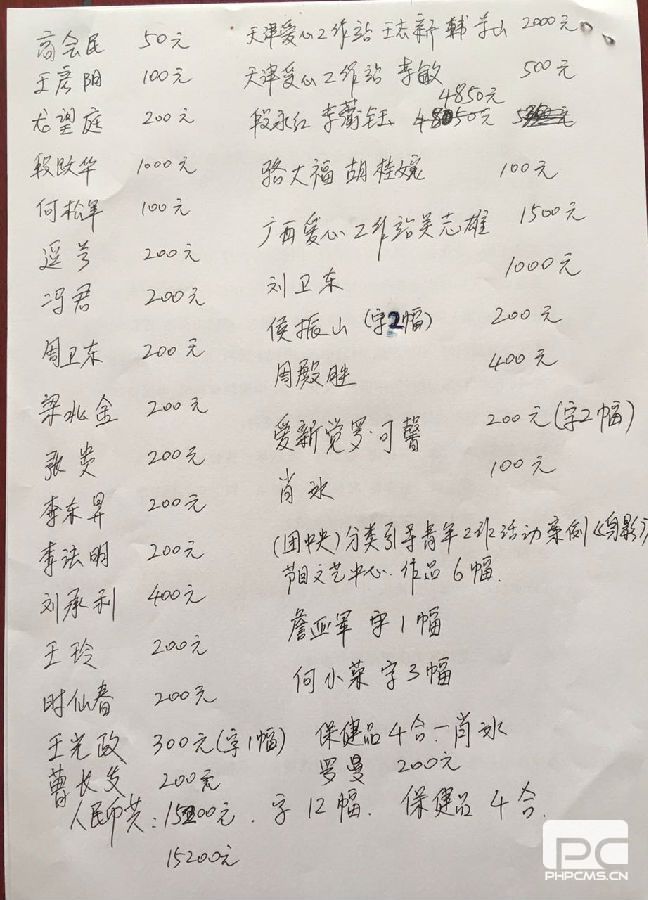 高会民 50元
王彦阳 100元
尤望庭 200元
段跃华 1000元
何松年 100元
逗号 200元
冯君 200元
周卫东 200元
梁兆金 200元
张贵 200元
李东昇 200元
李法明 200元
刘承利 400元
王玲 200元
时仙春 200元
王光政 300元(字1幅)
曹长发 200元
天津爱心工作站 王志新 韩芳山 2000元
天津爱心工作站 李敏 500元
4850元
段永红 李蕾钰 4850元
骆大福 胡桂婉 100元
广西爱心工作站吴志雄 1500元
刘卫东 1000元
侯振山(字2幅) 200元
周殿胜 400元
爱新觉罗·可馨 200元(字2幅)
肖冰 100元
(团中央)分类引导青年工作活动案例《身影》
节目文艺中心.作品6幅.
詹亚军 字1幅
何小菜 字3幅
保健品4合—肖冰
罗曼 200元
人民币共:15200元.字12幅.保健品4合.
15200元
PC
PHPCMS.CN